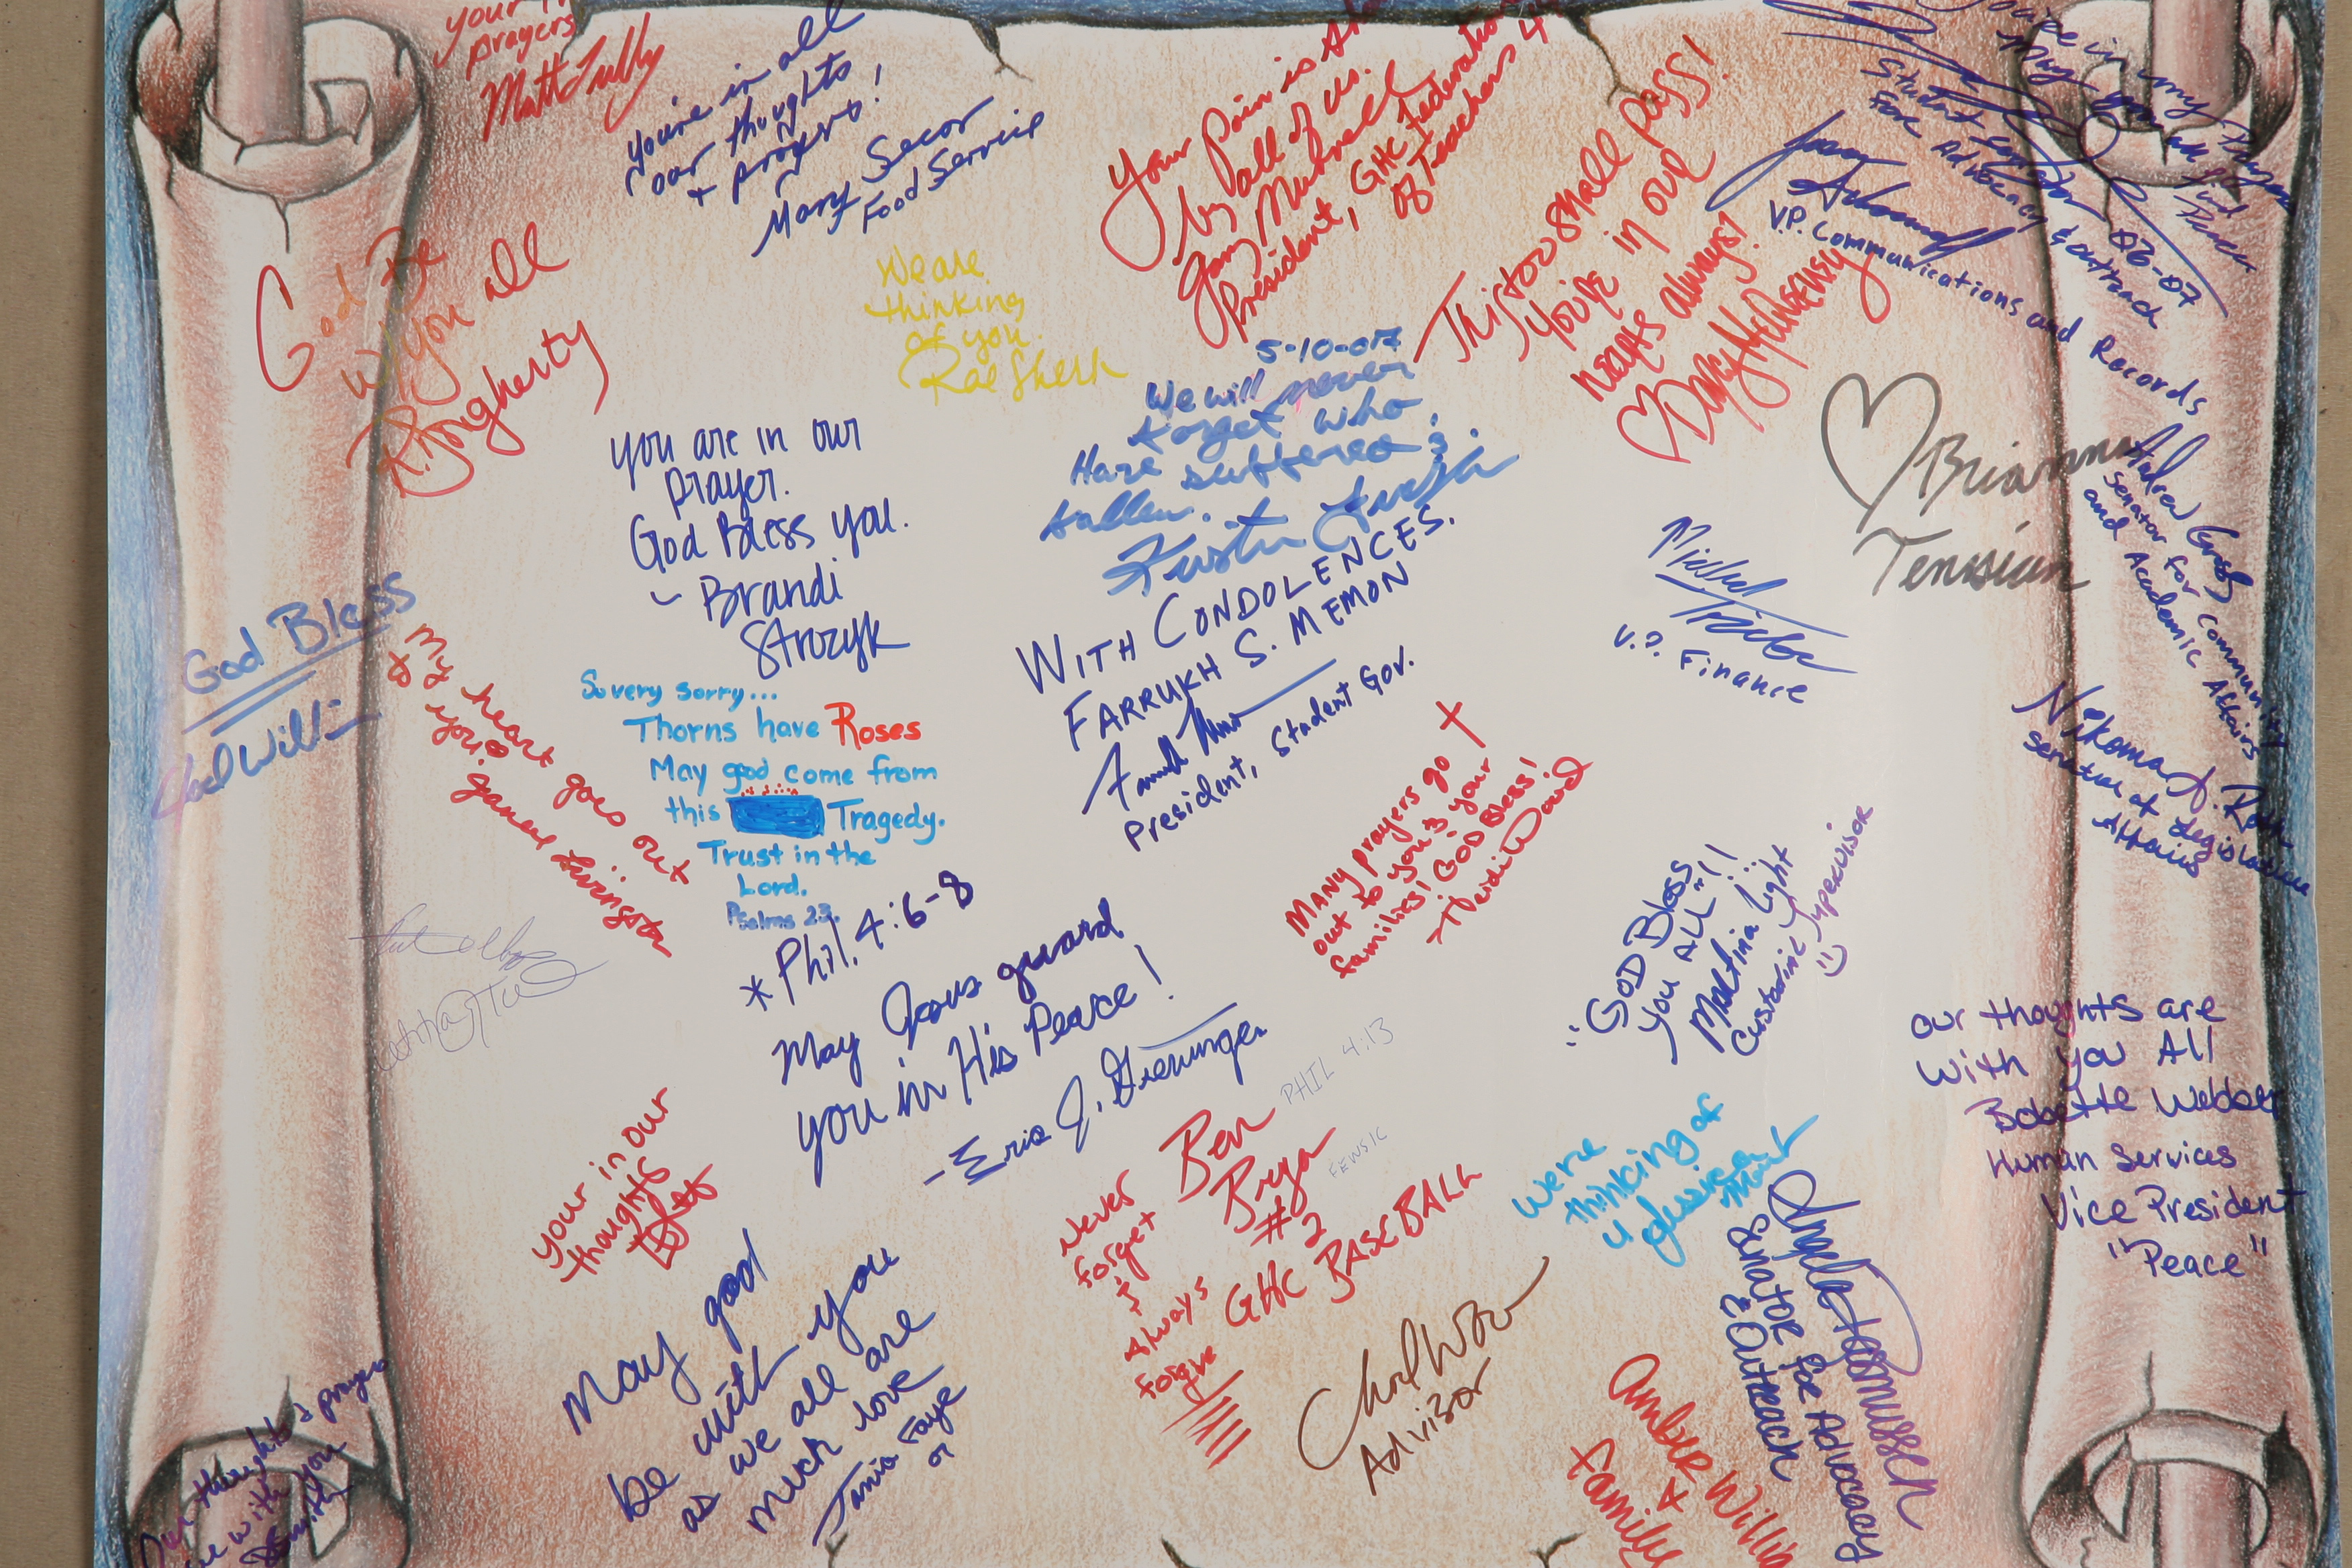 your
prayers
Matt Tully
you're in all
our thoughts
+ prayers!
Mary Secor
Food Service
Your Pain is
by all of us.
President, GHC Federation
of Teachers
This too shall pass!
You're in our
always!
You're in my
Student
For Advocacy & Outreach
06-07
V.P. Communications and Records
God Be
w/ you all
We are
thinking
of you.
5-10-07
We will never
forget who
Have suffered &
fallen.
♡ Brianna
Tenisian
you are in our
prayer.
God Bless you.
- Brandi
Strozyk
WITH CONDOLENCES.
FARRUKH S. MEMON
President, Student Gov.
Michael
V.P. Finance
Andrew
Senator for Community
and Academic Affairs
God Bless
My heart goes out
to you.
So very sorry...
Thorns have Roses
May god come from
this Tragedy.
Trust in the
Lord.
Psalms 23.
Nekoma
Senator of Legislative
Affairs
MANY prayers go
out to you & your
families! GOD Bless!
Heidi Ward
*Phil. 4:6-8
May Jesus guard
you in His Peace!
- Eric J.
PHIL 4:13
"GOD Bless
you ALL"!!
Martina Light
Custodial Supervisor
our thoughts are
With you All
Babette Webber
Human Services
Vice President
"Peace"
your in our
thoughts
Ben
#2
GHC BASEBALL
Never
forget
Always
forgive
We're
thinking of
u
Angela Rasmussen
Senator for Advocacy
& Outreach
May god
be with you
as we all are
much love
Faye
Advisor
Amber
+
family
Our thoughts & prayers
with you
Smith